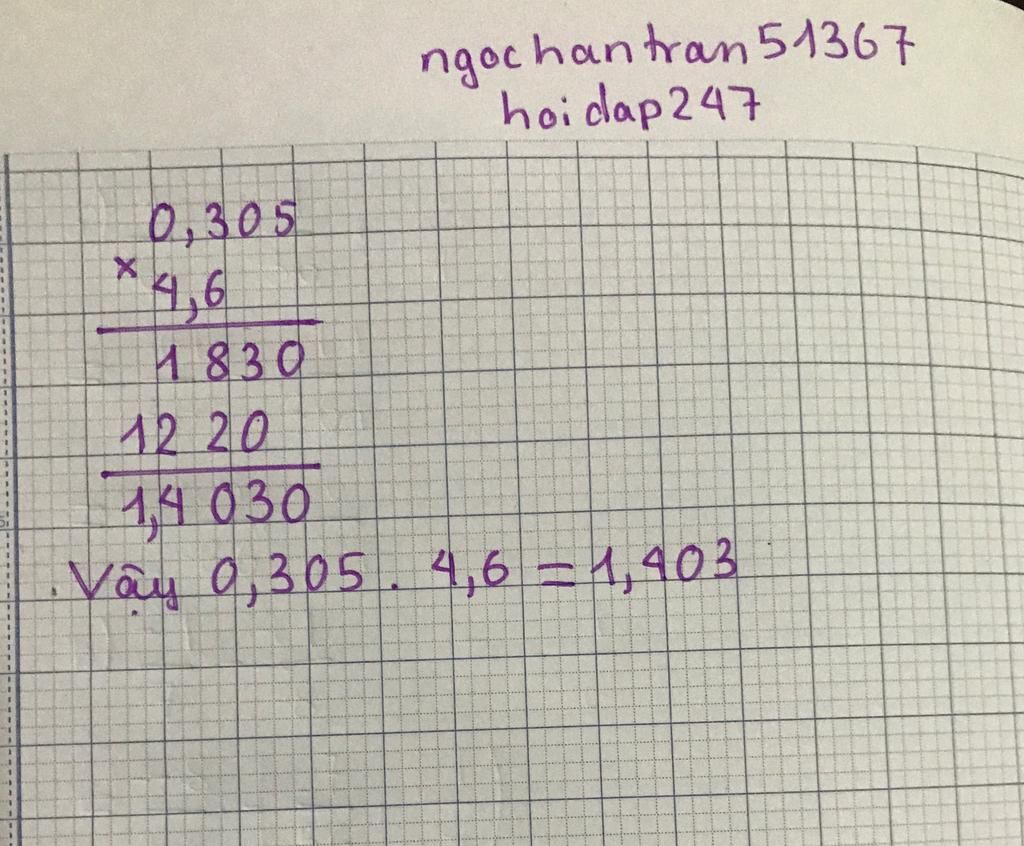 ngochantran51367
hoidap247
0,305
× 4,6
1 830
12 20
1,4 030
. Vậy 0,305 . 4,6 = 1,403